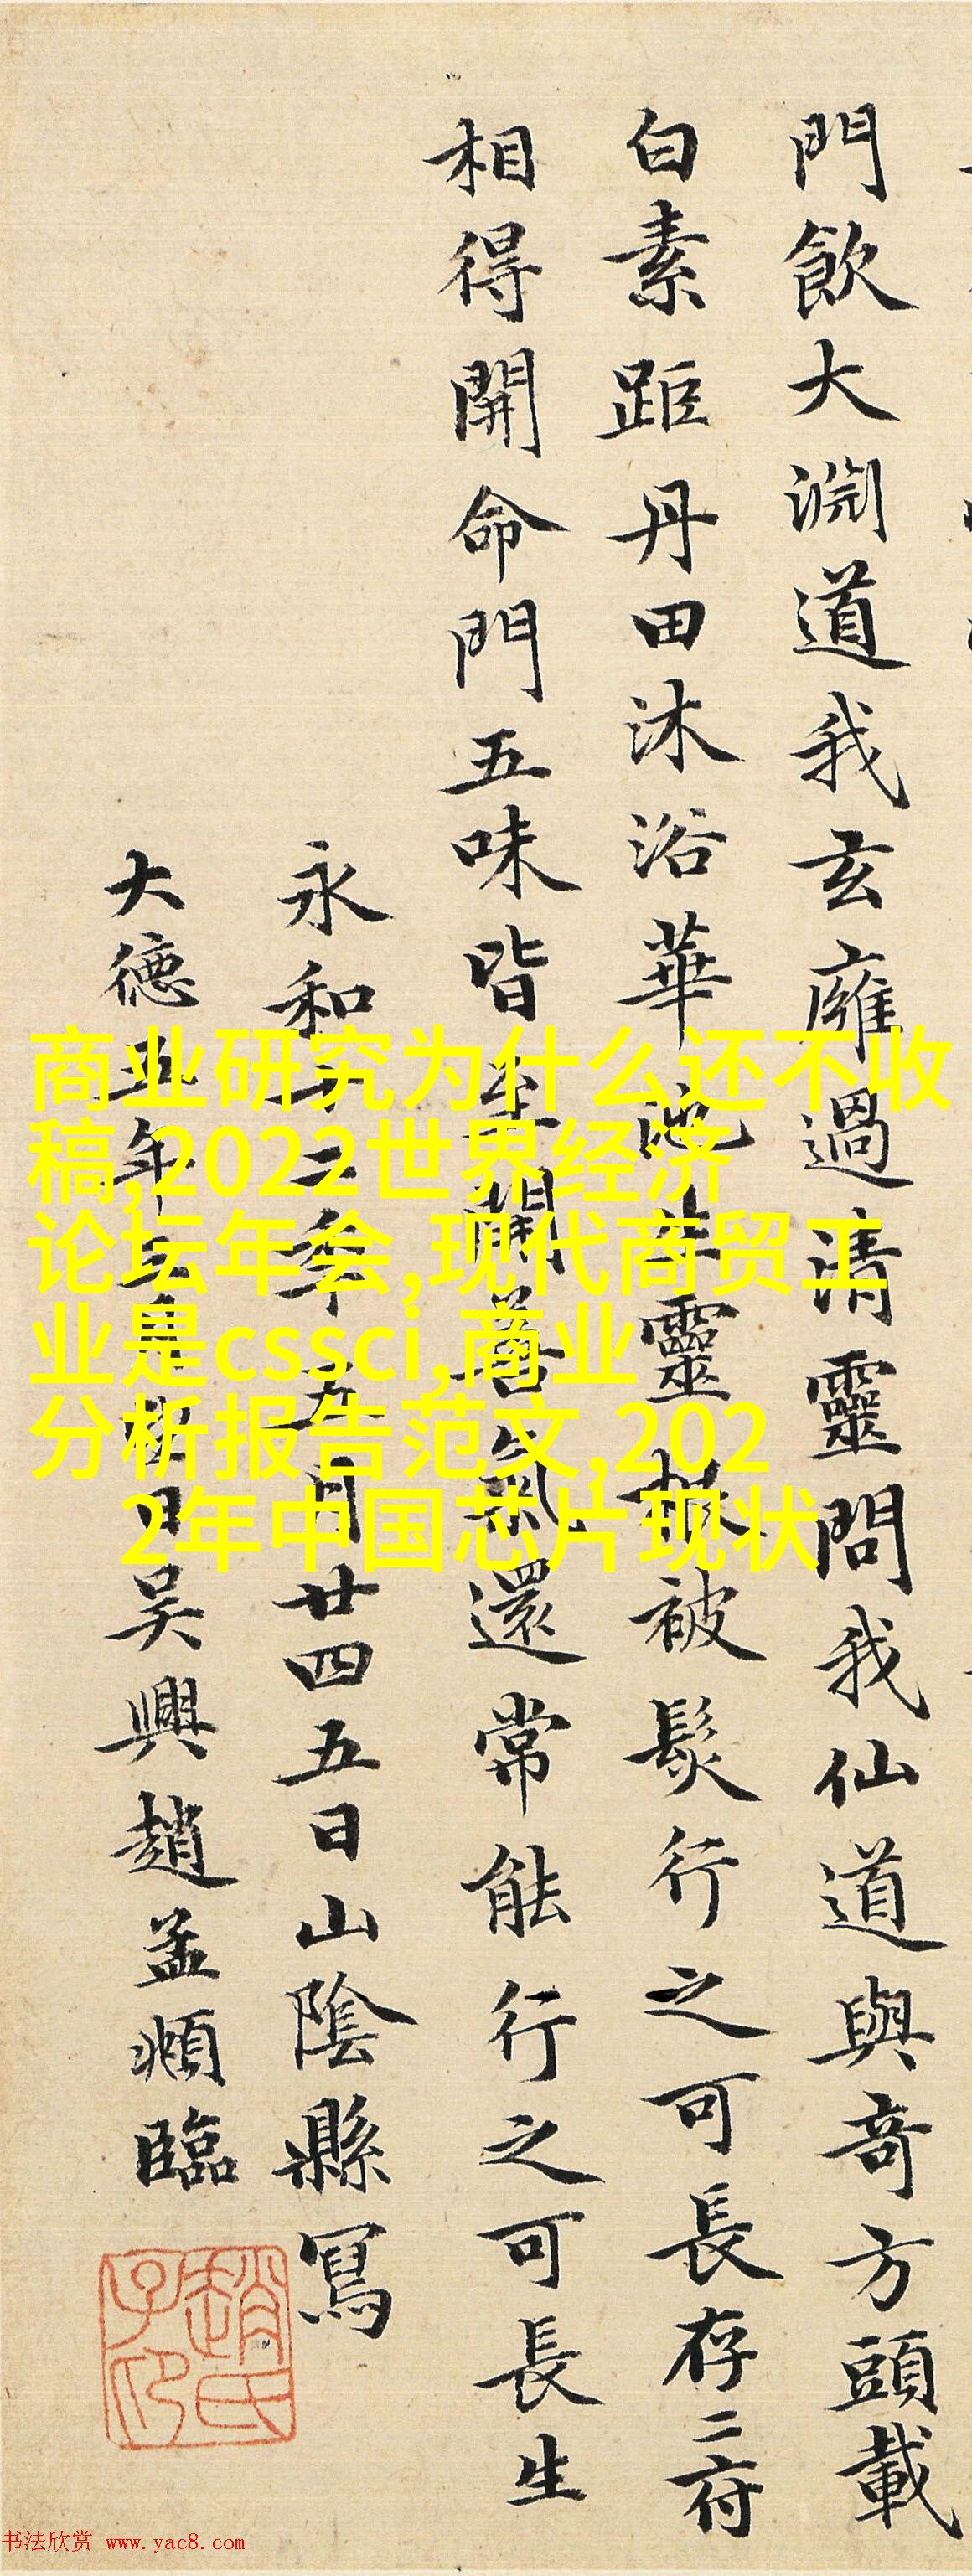 門飲大淵道我玄廱過清靈問我仙道與奇方頭載
白素距丹田沐浴華池生靈根被髮行之可長存二府
相得開命門五味皆至開善氣還常能行之可長生
永和十二年五月廿四五日山陰縣寫
大德五年月日吳興趙孟頫臨
趙氏子昂
商业研究为什么还不收
稿,2022世界经济
论坛年会,现代商贸工
业是cssci,商业
分析报告范文,202
2年中国芯片现状
书法欣赏 www.yac8.com